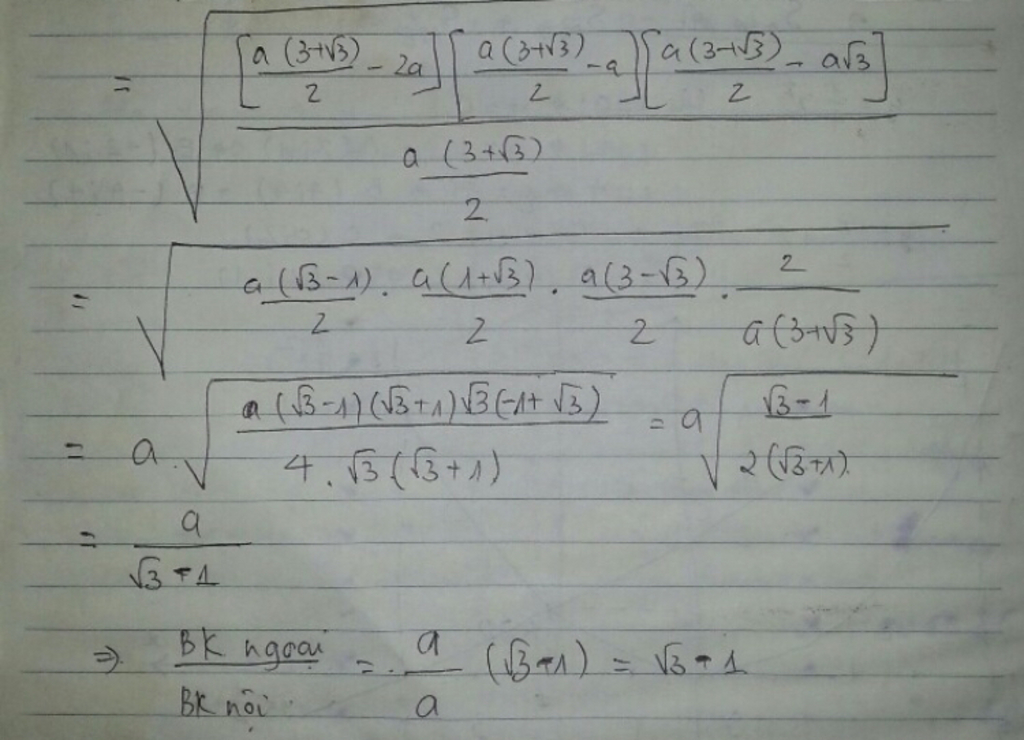 = √([a(3+√3)/2 - 2a][a(3+√3)/2 - a][a(3+√3)/2 - a√3] / (a(3+√3)/2))
= √(a(√3-1)/2 . a(1+√3)/2 . a(3-√3)/2 . 2/(a(3+√3)))
= a.√(a(√3-1)(√3+1)√3(-1+√3) / (4.√3(√3+1))) = a√((√3-1)/(2(√3+1)))
= a/(√3+1)
⇒ BK ngoại/BK nội = a/a (√3+1) = √3+1